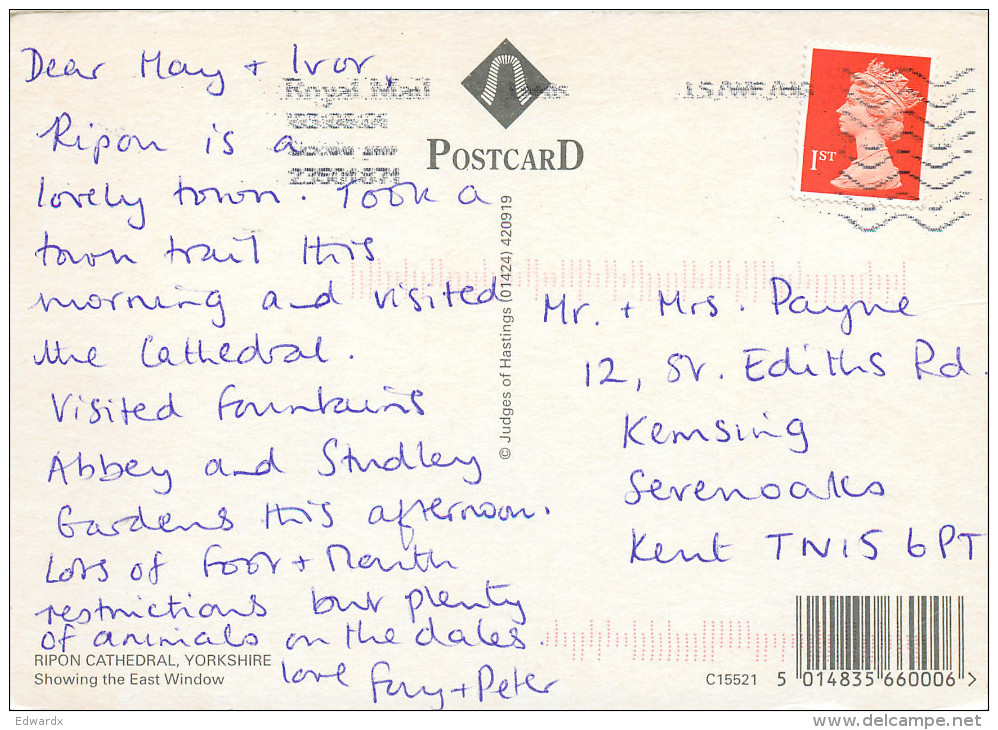 Dear May + Ivor
Ripon is a
lovely town. Took a
town trail this
morning and visited
the Cathedral.
Visited Fountains
Abbey and Studley
Gardens this afternoon.
Lots of Foot + Mouth
restrictions but plenty
of animals on the dales.
love Fay + Peter
RIPON CATHEDRAL, YORKSHIRE
Showing the East Window
Royal Mail
POSTCARD
© Judges of Hastings (01424) 420919
1ST
Mr. + Mrs. Payne
12, St. Ediths Rd.
Kemsing
Sevenoaks
Kent TN15 6PT
C15521 5 014835 660006 >
Edwardx
delcampe.net